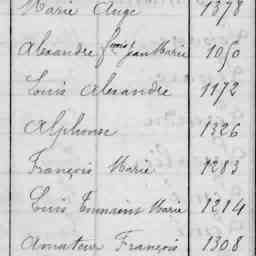 Marie Ange 1378
Alexandre fçois Jean Marie 1050
Louis Alexandre 1172
Alphonse 1326
François Marie 1283
Louis Toussaint Marie 1214
Amateur François 1308